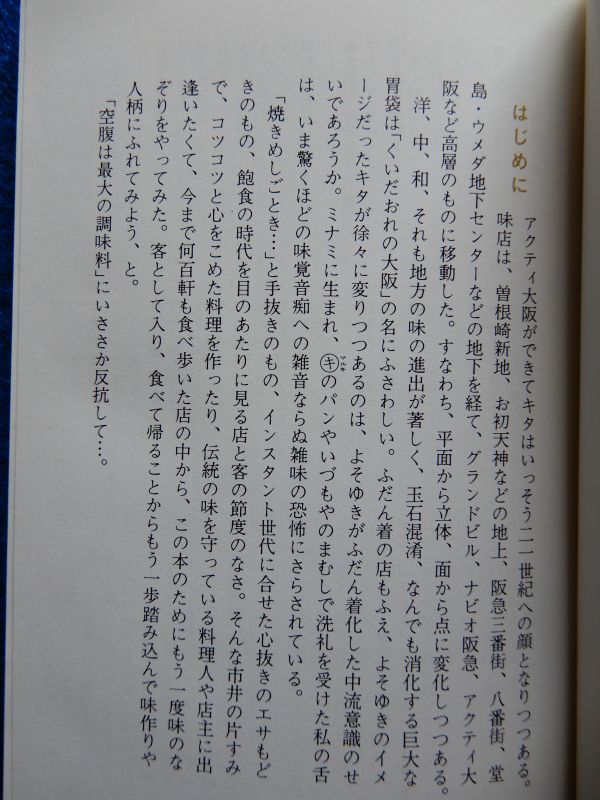 はじめに
アクティ大阪ができてキタはいっそう二一世紀への顔となりつつある。
味店は、曽根崎新地、お初天神などの地上、阪急三番街、八番街、堂
島・ウメダ地下センターなどの地下を経て、グランドビル、ナビオ阪急、アクティ大
阪など高層のものに移動した。すなわち、平面から立体、面から点に変化しつつある。
洋、中、和、それも地方の味の進出が著しく、玉石混淆、なんでも消化する巨大な
胃袋は「くいだおれの大阪」の名にふさわしい。ふだん着の店もふえ、よそゆきのイメ
ージだったキタが徐々に変りつつあるのは、よそゆきがふだん着化した中流意識のせ
いであろうか。ミナミに生まれ、㋖のパンやいづもやのまむしで洗礼を受けた私の舌
マルキ
は、いま驚くほどの味覚音痴への雑音ならぬ雑味の恐怖にさらされている。
「焼きめしごとき…」と手抜きのもの、インスタント世代に合せた心抜きのエサもど
きのもの、飽食の時代を目のあたりに見る店と客の節度のなさ。そんな市井の片すみ
で、コツコツと心をこめた料理を作ったり、伝統の味を守っている料理人や店主に出
逢いたくて、今まで何百軒も食べ歩いた店の中から、この本のためにもう一度味のな
ぞりをやってみた。客として入り、食べて帰ることからもう一歩踏み込んで味作りや
人柄にふれてみよう、と。
「空腹は最大の調味料」にいささか反抗して…。